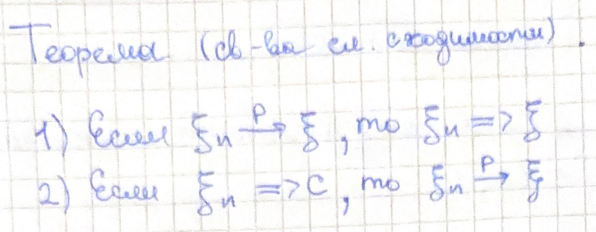 Теорема (св-ва сл. сходимости).
1) Если ξₙ →ᴾ ξ, то ξₙ => ξ
2) Если ξₙ => C, то ξₙ →ᴾ ξ